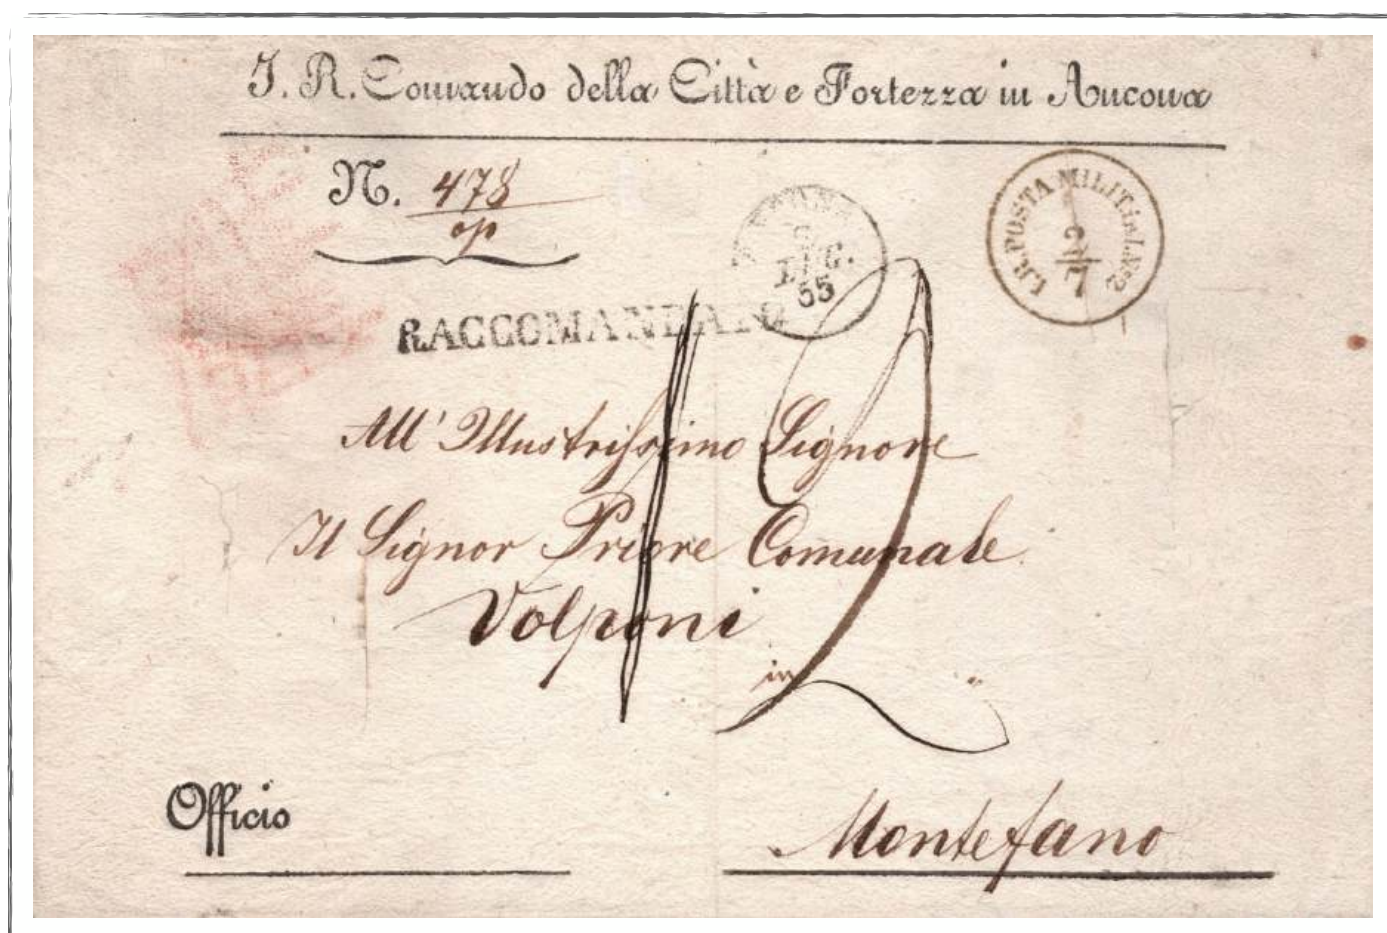 I. R. Comando della Città e Fortezza in Ancona
N. 478
op
I.R. POSTA MILIT. in I. Nº2
7
LUG.
55
RACCOMANDATA
All' Illustrissimo Signore
Il Signor Priore Comunale
Volponi
12
in
Officio
Montefano